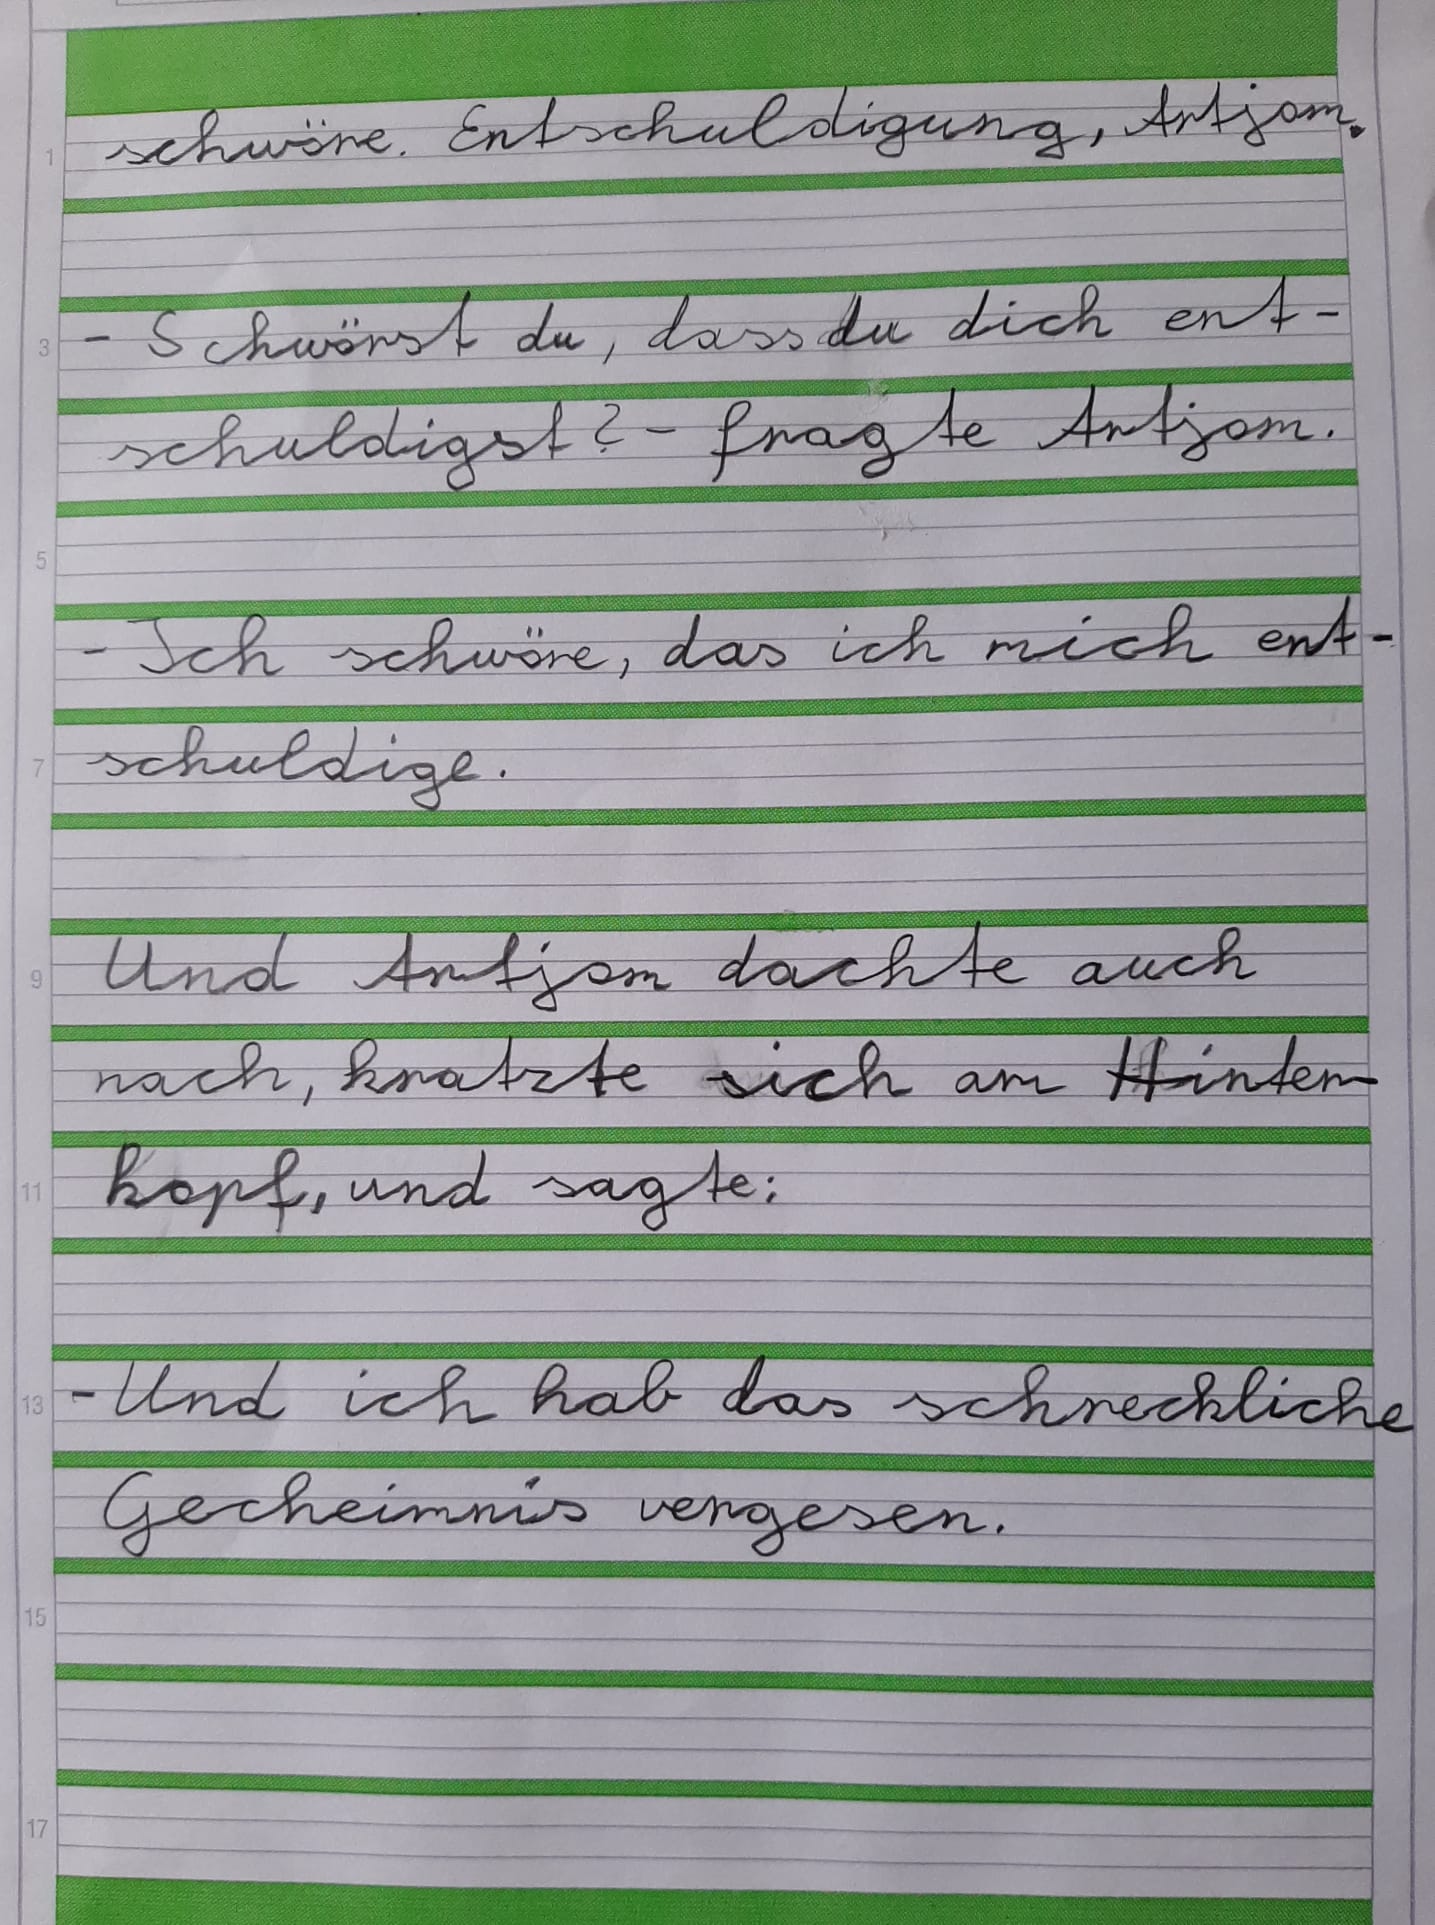 schwöre. Entschuldigung, Artjom.
- Schwörst du, dass du dich ent-
schuldigst? - fragte Artjom.
- Ich schwöre, das ich mich ent-
schuldige.
Und Artjom dachte auch
nach, kratzte sich am Hinter-
kopf, und sagte:
- Und ich hab das schreckliche
Gecheimnis vergesen.
1
3
5
7
9
11
13
15
17